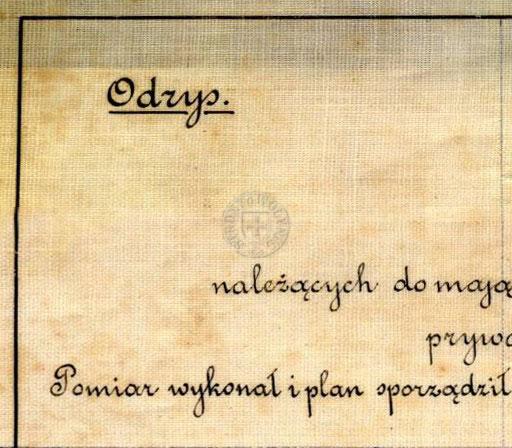 Odrys.
należących do mają
prywa
Pomiar wykonał i plan sporządził